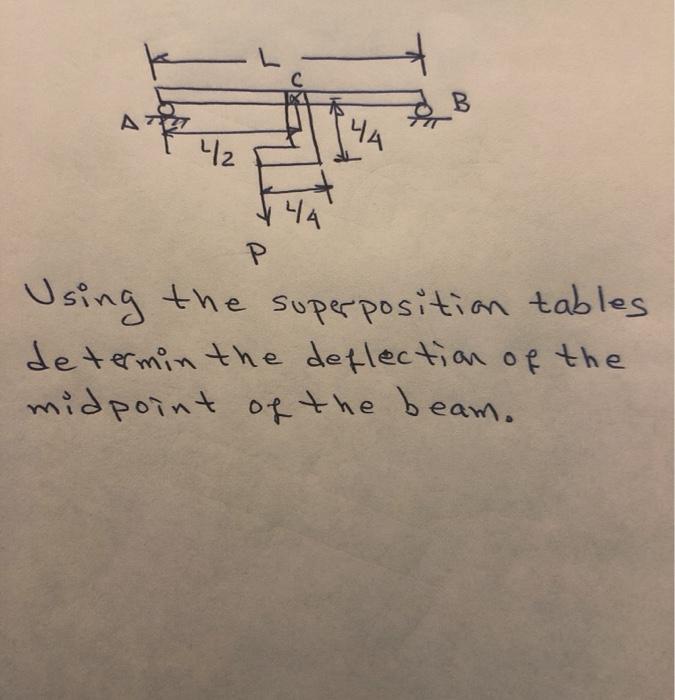 L
C
A
B
L/2
L/4
L/4
P
Using the superposition tables
determin the deflection of the
midpoint of the beam.